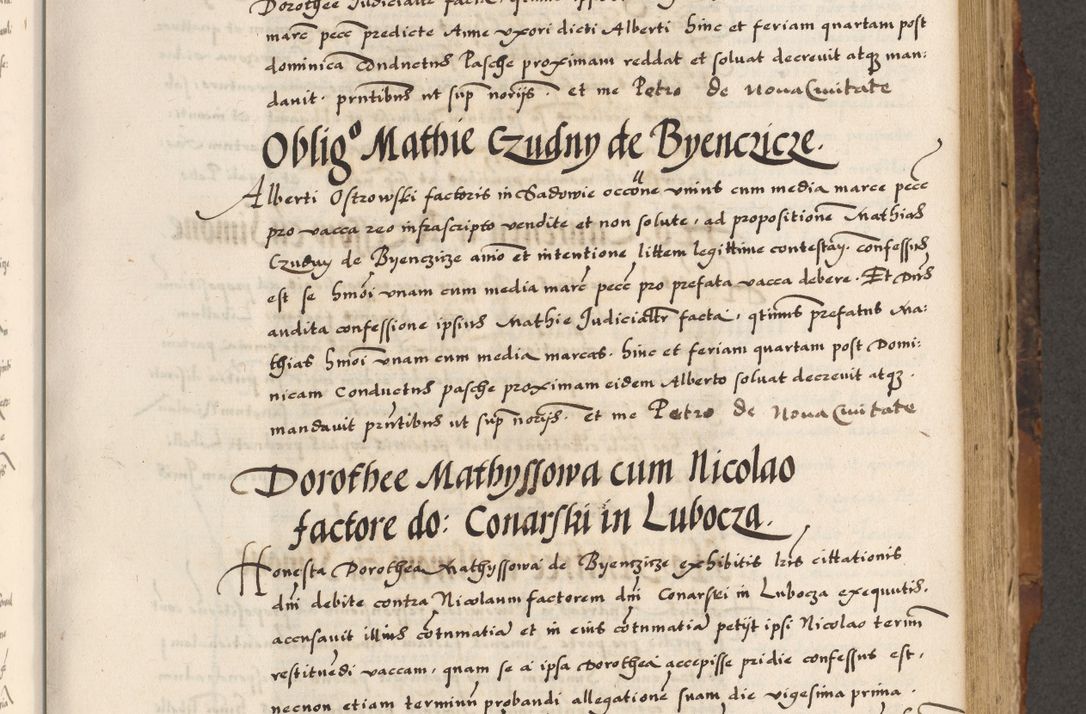 Dorothee Iudicialiter facta,
marc̄ pecc̄ predicte Anne vxori dicti Alberti hinc et feriam quartam post
dominica Conductus Pasche proximam reddat et soluat decreuit atqȝ man:
dauit. pn̄tibus ut sup̄ norijs. et me Petro de Noua Ciuitate
Oblig⁰ Mathie Czudny de Byenczicze.
Alberti Ostrowski factoris in Sadowie occōne vnius cum media marce pecc̄
pro vacca reo infrascripto vendite et non solute, ad propositionē Mathias
Czudny de Byenczicze aīo et intentione littem legittime contestan. confessus
est se hmōi vnam cum media marc̄ pecc̄ pro prefata vacca debere. Et Dn̄s
audita confessione ipsius Mathie Iudicialr̄ facta, qtinus prefatus Ma:
thias hmōi vnam cum media marcas. hinc et feriam quartam post Domi:
nicam Conductus pasche proximam eidem Alberto soluat decreuit atqȝ.
mandauit prn̄tibus ut sup̄ norijs. Et me Petro de Noua Ciuitate
Dorothee Mathyssowa cum Nicolao
factore do: Conarski in Lubocza.
Honesta Dorothea Mathyssowa de Byenczicze exhibitis lr̄is cittationis
dn̄i debite contra Nicolaum factorem dn̄i Conarski in Lubocza exequutis.
accusauit illius cōtumatiā et in eius cōtumatiā petijt ipsi Nicolao termin̄
restituēdi vaccam, quam se a ipsa Dorothea accepisse pridie confessus est,
necnon etiam terminū probandi allegationē suam die vigesima prima.